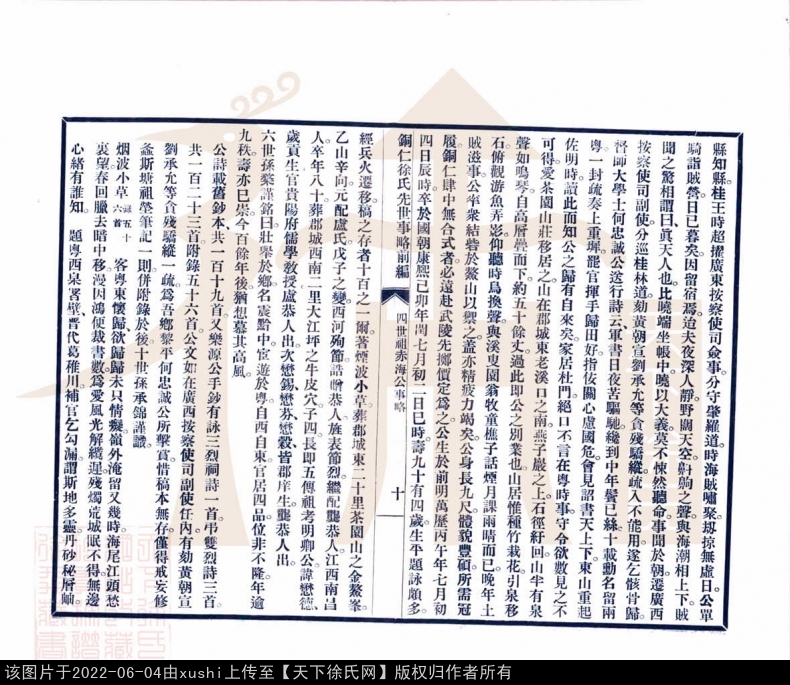 縣知縣桂王時超擢廣東按察使司僉事分守肇羅道時海賊嘯聚刼掠無虛日公單
騎詣賊營日已暮矣因留宿焉迨夫夜深人靜野闊天空齁齁之聲與海潮相上下賊
聞之驚相謂曰眞天人也比曉端坐帳中曉以大義莫不悚然聽命事聞於朝遷廣西
按察使司副使分巡桂林道劾黃朝宣劉承允等貪殘驕縱疏入不能用遂乞骸骨歸
督師大學士何忠誠公送行詩云軍書日夜苦驅馳纔到中年鬢已絲十載勳名留兩
粵一封疏奏上重墀罷官揮手歸田好指佞關心慮國危會見詔書天上下東山重起
佐明時讀此而知公之歸有自來矣家居杜門絕口不言在粵時事守令欲數見之不
可得愛茶園山莊移居之山在郡城東老溪口之南燕子巖之上石徑紆回山半有泉
聲如鳴琴自高厝疊而下約五十餘丈過此即公之別業也山居惟種竹栽花引泉移
石俯觀游魚弄影仰聽時鳥換聲與溪叟園翁牧童樵子話煙月課雨晴而已晚年土
賊滋事公率衆結砦於鰲山以禦之蓋亦精疲力竭矣公身長九尺體貌豐碩所需冠
履銅仁肆中無合式者必遠赴武陵先擲價定爲之公生於前明萬歷丙午年七月初
四日辰時卒於國朝康熙己卯年閏七月初二日巳時壽九十有四歲生平題詠頗多
銅仁徐氏先世事略前編 四世祖赤海公事略 十
經兵火遷移稿之存者十百之一爾著煙波小草葬郡城東二十里茶園山之金鰲峯
乙山辛向元配盧氏戊子之變西河殉節誥贈恭人旌表節烈繼配龔恭人江西南昌
人卒年八十葬郡城西南二里大江坪之牛皮穴子四長即五傳祖考明卿公諱懋德
歲貢生官貴陽府儒學教授盧恭人出次懋錫懋芬懋穀皆郡庠生龔恭人出
六世孫棻謹銘曰壯舉於鄉名震黔中宦遊於粵自西自東官居四品位非不隆年逾
九秩壽亦已崇今百餘年後猶想慕其高風
公詩載舊鈔本共一百十九首又樂源公手鈔有詠三烈祠詩一首弔雙烈詩三首
共一百二十三首附錄五十六首公文如在廣西按察使司副使任內有劾黃朝宣
劉承允等貪殘驕縱一疏爲吾鄉黎平何忠誠公所擊賞惜稿本無存僅得戒妄修
螽斯塘祖塋筆記一則併附錄於後十世孫承錦謹識
烟波小草錄五十六首 客粵東懷歸欲歸歸未只情癡嶺外淹留又幾時海尾江頭愁
裏望春回臘去暗中移漫因鴻便裁書數爲愛風光解纜遲殘燭荒城眠不得無邊
心緒有誰知 題粵西臬署壁晉代葛稚川補官乞勾漏謂斯地多靈丹砂秘厝岫
该图片于2022-06-04由xushi上传至【天下徐氏网】版权归作者所有